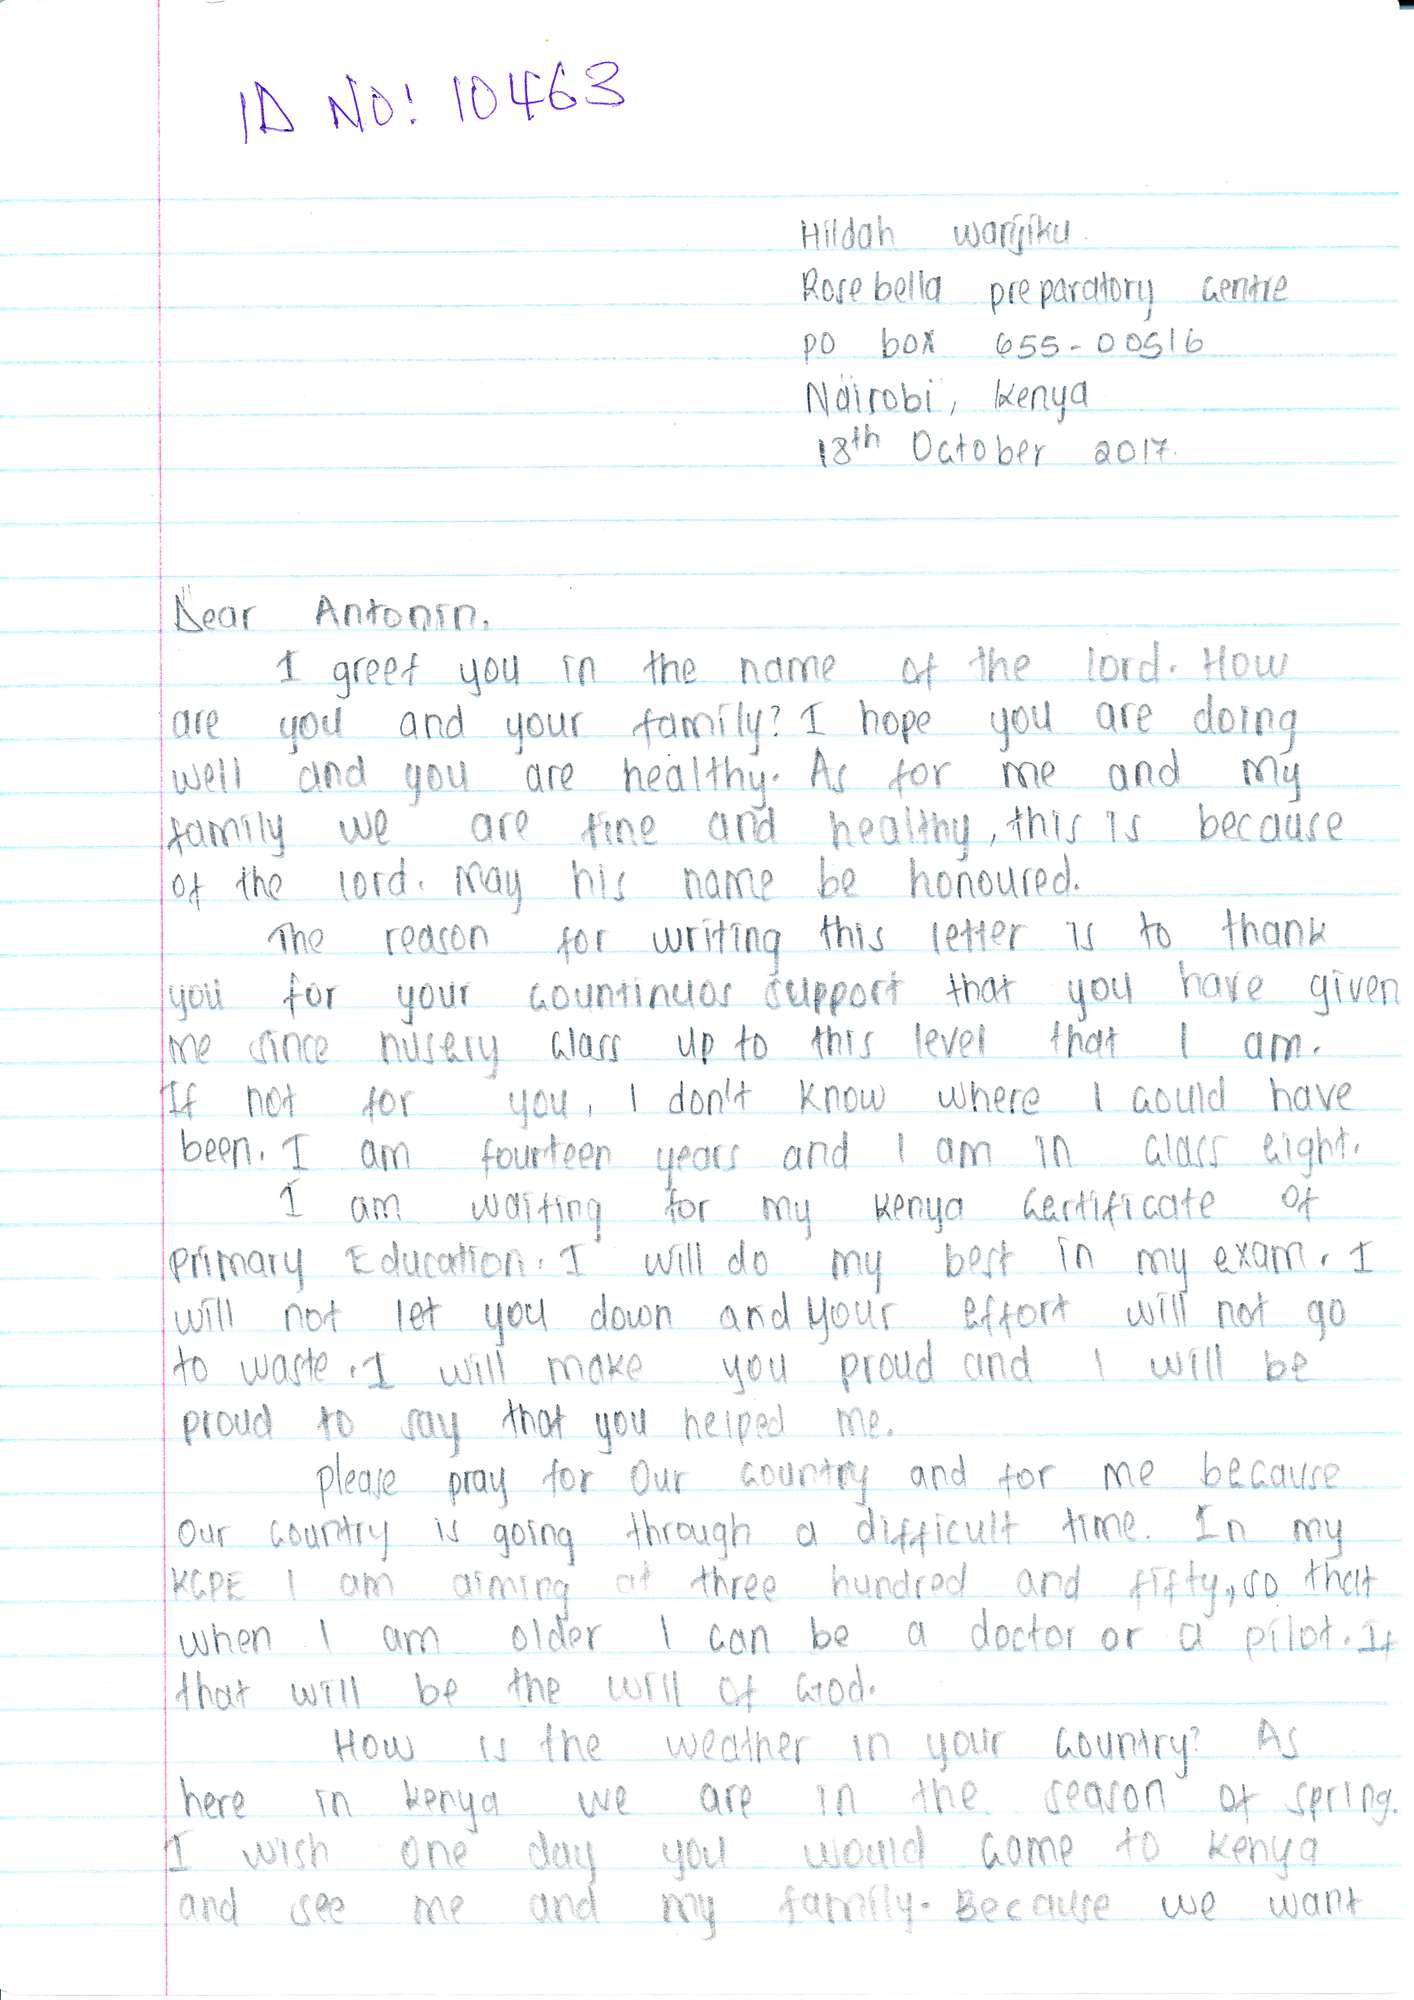 ID NO: 10463
Hildah Wanjiku
Rosebella preparatory centre
PO box 655-00516
Nairobi, Kenya
18th October 2017.
Dear Antonin,
I greet you in the name of the lord. How
are you and your family? I hope you are doing
well and you are healthy. As for me and my
family we are fine and healthy, this is because
of the lord. May his name be honoured.
The reason for writing this letter is to thank
you for your countinuos support that you have given
me since nusery class up to this level that I am.
If not for you, I don't know where I could have
been. I am fourteen years and I am in class eight.
I am waiting for my Kenya Certificate of
primary Education. I will do my best in my exam. I
will not let you down and your effort will not go
to waste. I will make you proud and I will be
proud to say that you helped me.
please pray for our country and for me because
our country is going through a difficult time. In my
KCPE I am aiming at three hundred and fifty, so that
when I am older I can be a doctor or a pilot. If
that will be the will of God.
How is the weather in your country? As
here in Kenya we are in the season of spring.
I wish one day you would come to Kenya
and see me and my family. Because we want